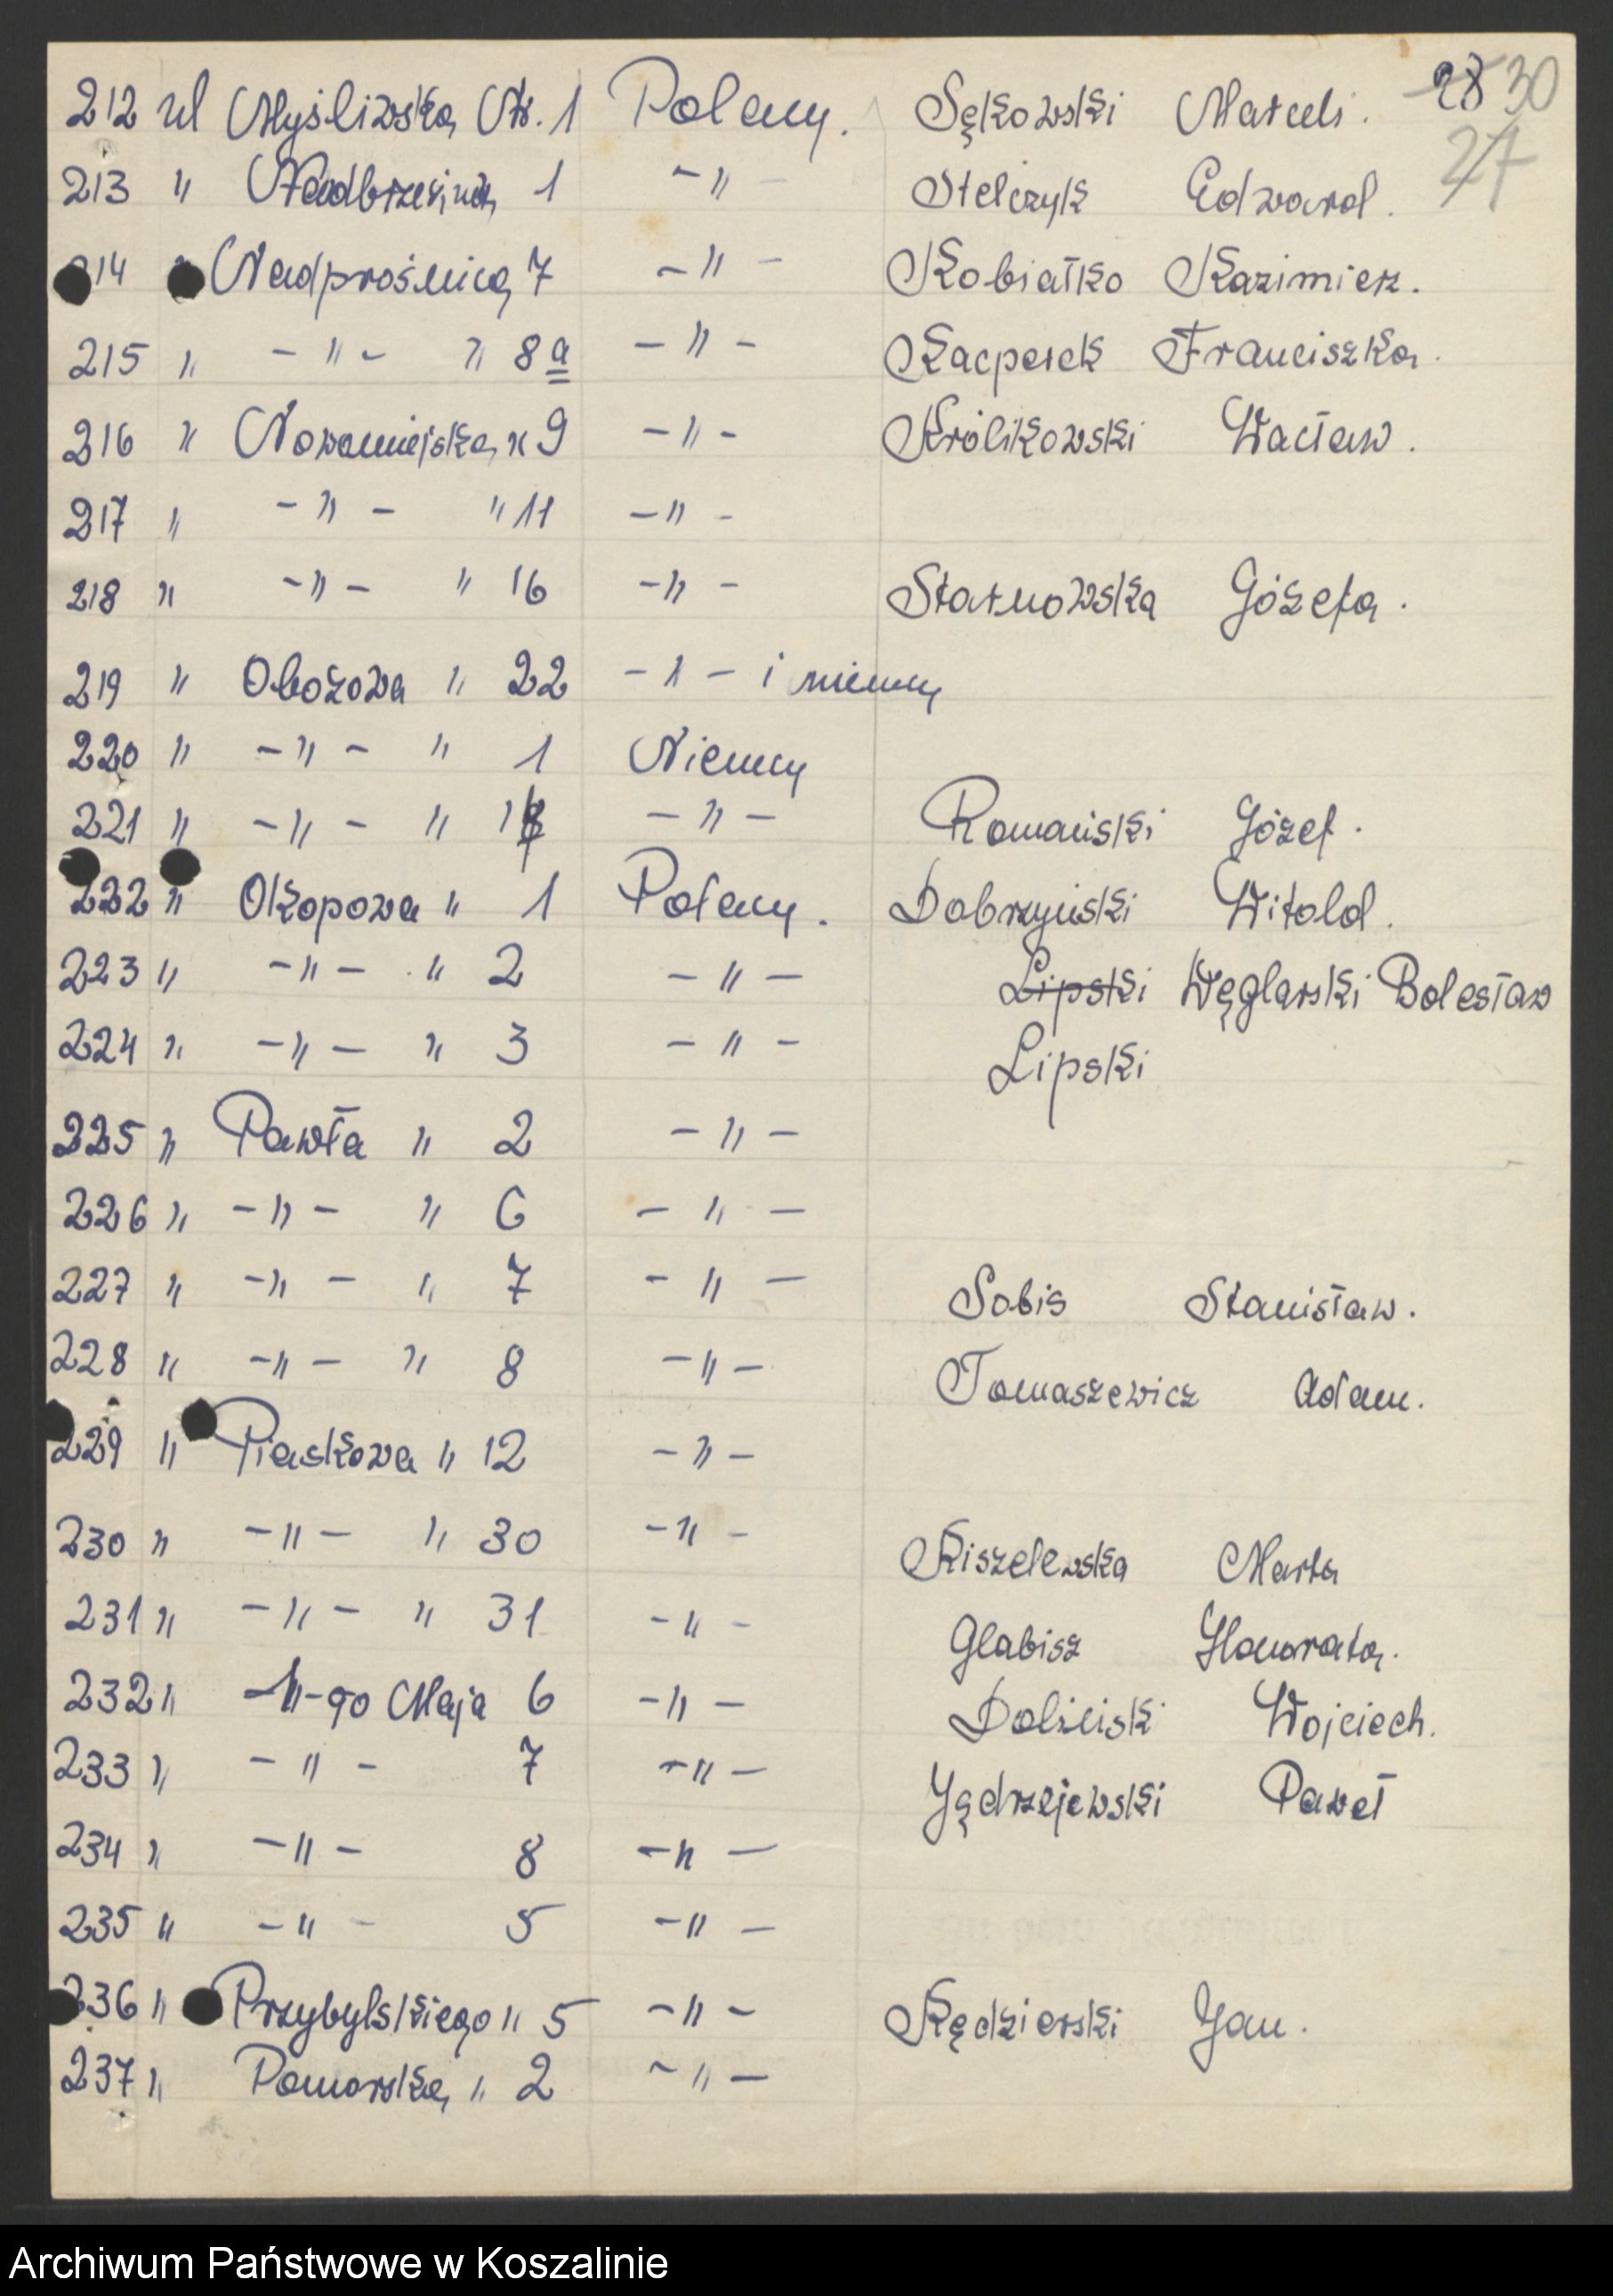 28 30
27
212 ul Myśliwska, Nr. 1 Polacy. Sękowski Marceli.
213 " 1 - " - Stelczyk Edward.
214 " Nadprośnicą, 7 - " - Kobiałko Kazimierz.
215 " - " - " 8a - " - Kacperek Franciszka.
216 " Nowomiejska, " 9 - " - Królikowski Wacław.
217 " - " - " 11 - " -
218 " - " - " 16 - " - Starnowska Józefa.
219 " Obozowa " 22 - " - i niemcy
220 " - " - " 1 Niemcy
221 " - " - " - " - Romański Józef.
222 " Okopowa " 1 Polacy. Dobrzyński Witold.
223 " - " - " 2 - " - Lipski Węglarski Bolesław
224 " - " - " 3 - " - Lipski
225 " Pawła " 2 - " -
226 " - " - " 6 - " -
227 " - " - " 7 - " - Sobis Stanisław.
228 " - " - " 8 - " - Tomaszewicz Adam.
229 " Piaskowa " 12 - " -
230 " - " - " 30 - " - Kiszelewska Marta
231 " - " - " 31 - " - Glabisz Honorata.
232 " 1-go Maja 6 - " - Wojciech.
233 " - " - 7 - " - Jędrzejewski Paweł
234 " - " - 8 - " -
235 " - " - 5 - " -
236 " Przybylskiego " 5 - " - Kędzierski Jan.
237 " Pomorska, " 2 - " -
Archiwum Państwowe w Koszalinie